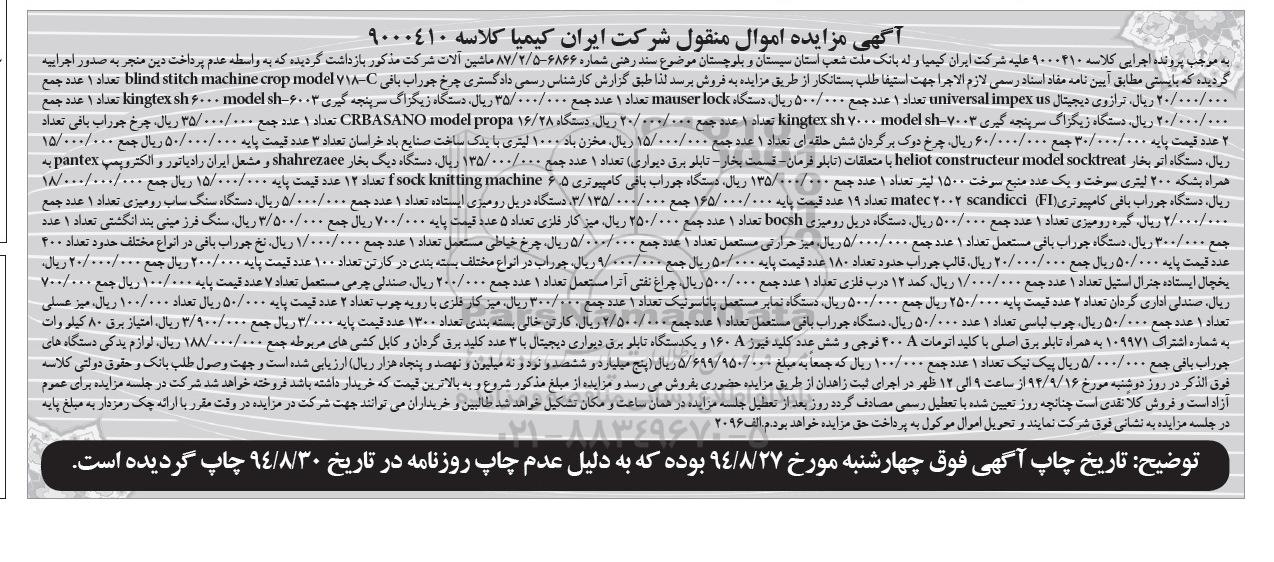 آگهی مزایده اموال منقول شرکت ایران کیمیا کلاسه ۹۰۰۰۴۱۰
به موجب پرونده اجرایی کلاسه ۹۰۰۰۴۱۰ علیه شرکت ایران کیمیا و له بانک ملت شعب استان سیستان و بلوچستان موضوع سند رهنی شماره ۶۸۶۶-۸۷/۲/۵ ماشین آلات شرکت مذکور بازداشت گردیده که به واسطه عدم پرداخت دین منجر به صدور اجراییه
گردیده که بایستی مطابق آیین نامه مفاد اسناد رسمی لازم الاجرا جهت استیفا طلب بستانکار از طریق مزایده به فروش برسد لذا طبق گزارش کارشناس رسمی دادگستری چرخ جوراب بافی blind stitch machine crop model ۷۱۸-C تعداد ۱ عدد جمع
۲۰/۰۰۰/۰۰۰ ریال، ترازوی دیجیتال universal impex us تعداد ۱ عدد جمع ۵۰۰/۰۰۰ ریال، دستگاه mauser lock تعداد ۱ عدد جمع ۳۵/۰۰۰/۰۰۰ ریال، دستگاه زیگزاگ سرپنجه گیری kingtex sh ۶۰۰۰ model sh-۶۰۰۳ تعداد ۱ عدد جمع
۲۰/۰۰۰/۰۰۰ ریال، دستگاه زیگزاگ سرپنجه گیری kingtex sh ۷۰۰۰ model sh-۷۰۰۳ تعداد ۱ عدد جمع ۲۰/۰۰۰/۰۰۰ ریال، دستگاه CRBASANO model propa ۱۶/۲۸ تعداد ۱ عدد جمع ۳۵/۰۰۰/۰۰۰ ریال، چرخ جوراب بافی تعداد
۲ عدد قیمت پایه ۳۰/۰۰۰/۰۰۰ جمع ۶۰/۰۰۰/۰۰۰ ریال، چرخ دوک برگردان شش حلقه ای تعداد ۱ عدد جمع ۱۵/۰۰۰/۰۰۰ ریال، مخزن باد ۱۰۰۰ لیتری با یدک ساخت صنایع باد خراسان تعداد ۳ عدد قیمت پایه ۵۰/۰۰۰/۰۰۰ ریال جمع ۱۵/۰۰۰/۰۰۰
ریال، دستگاه اتو بخار heliot constructeur model socktreat با متعلقات (تابلو فرمان- قسمت بخار- تابلو برق دیواری) تعداد ۱ عدد جمع ۱۳۵/۰۰۰/۰۰۰ ریال، دستگاه دیگ بخار shahrezaee و مشعل ایران رادیاتور و الکتروپمپ pantex به
همراه بشکه ۲۰۰ لیتری سوخت و یک عدد منبع سوخت ۱۵۰۰ لیتر تعداد ۱ عدد جمع ۱۳۵/۰۰۰/۰۰۰ ریال، دستگاه جوراب بافی کامپیوتری ۶.۵ f sock knitting machine تعداد ۱۲ عدد قیمت پایه ۱۵/۰۰۰/۰۰۰ ریال جمع ۱۸/۰۰۰/۰۰۰
ریال، دستگاه جوراب بافی کامپیوتری matec ۲۰۰۲ scandicci (FI) تعداد ۱۹ عدد قیمت پایه ۱۶۵/۰۰۰/۰۰۰ جمع ۳/۱۳۵/۰۰۰/۰۰۰، دستگاه دریل رومیزی ایستاده تعداد ۱ عدد جمع ۵/۰۰۰/۰۰۰ ریال، دستگاه سنگ ساب رومیزی تعداد ۱ عدد جمع
۲/۰۰۰/۰۰۰ ریال، گیره رومیزی تعداد ۱ عدد جمع ۵۰۰/۰۰۰ ریال، دستگاه دریل رومیزی bocsh تعداد ۱ عدد جمع ۲۵۰/۰۰۰ ریال، میز کار فلزی تعداد ۵ عدد قیمت پایه ۷۰۰/۰۰۰ ریال جمع ۳/۵۰۰/۰۰۰ ریال، سنگ فرز مینی بند انگشتی تعداد ۱ عدد
جمع ۳۰۰/۰۰۰ ریال، دستگاه جوراب بافی مستعمل تعداد ۱ عدد جمع ۵/۰۰۰/۰۰۰ ریال، میز حرارتی مستعمل تعداد ۱ عدد جمع ۵/۰۰۰/۰۰۰ ریال، چرخ خیاطی مستعمل تعداد ۱ عدد جمع ۱/۰۰۰/۰۰۰ ریال، نخ جوراب بافی در انواع مختلف حدود تعداد ۴۰۰
عدد قیمت پایه ۵۰/۰۰۰ ریال جمع ۲۰/۰۰۰/۰۰۰ ریال، قالب جوراب حدود تعداد ۱۸۰ عدد قیمت پایه ۵۰/۰۰۰ ریال جمع ۹/۰۰۰/۰۰۰ ریال، جوراب در انواع مختلف بسته بندی در کارتن تعداد ۱۰۰ عدد قیمت پایه ۲۰۰/۰۰۰ ریال جمع ۲۰/۰۰۰/۰۰۰ ریال،
یخچال ایستاده جنرال استیل تعداد ۱ عدد جمع ۱/۰۰۰/۰۰۰ ریال، کمد ۱۲ درب فلزی تعداد ۱ عدد جمع ۵۰۰/۰۰۰ ریال، چراغ نفتی آترا مستعمل تعداد ۱ عدد جمع ۲۰۰/۰۰۰ ریال، صندلی چرمی مستعمل تعداد ۷ عدد قیمت پایه ۱۰۰/۰۰۰ ریال جمع ۷۰۰/۰۰۰
ریال، صندلی اداری گردان تعداد ۲ عدد قیمت پایه ۲۵۰/۰۰۰ ریال جمع ۵۰۰/۰۰۰ ریال، دستگاه نمابر مستعمل پاناسونیک تعداد ۱ عدد جمع ۳۰۰/۰۰۰ ریال، میز کار فلزی با رویه چوب تعداد ۲ عدد قیمت پایه ۵۰/۰۰۰ ریال تعداد ۱۰۰/۰۰۰ ریال، میز عسلی
تعداد ۱ عدد جمع ۵۰/۰۰۰ ریال، چوب لباسی تعداد ۱ عدد ۵۰/۰۰۰ ریال، دستگاه جوراب بافی مستعمل تعداد ۱ عدد جمع ۲/۵۰۰/۰۰۰ ریال، کارتن خالی بسته بندی تعداد ۱۳۰۰ عدد قیمت پایه ۳/۰۰۰ ریال جمع ۳/۹۰۰/۰۰۰ ریال، امتیاز برق ۸۰ کیلو وات
به شماره اشتراک ۱۰۹۹۷۱ به همراه تابلو برق اصلی با کلید اتومات ۴۰۰ A فوجی و شش عدد کلید فیوز ۱۶۰ A و یکدستگاه تابلو برق دیواری دیجیتال با ۳ عدد کلید برق گردان و کابل کشی های مربوطه جمع ۱۸۸/۰۰۰/۰۰۰ ریال، لوازم یدکی دستگاه های
جوراب بافی جمع ۵/۰۰۰/۰۰۰ ریال پیک نیک تعداد ۱ عدد جمع ۱۰۰/۰۰۰ ریال که جمعاً به مبلغ ۵/۶۹۹/۹۵۰/۰۰۰ ریال (پنج میلیارد و ششصد و نود و نه میلیون و نهصد و پنجاه هزار ریال) ارزیابی شده است و جهت وصول طلب بانک و حقوق دولتی کلاسه
فوق الذکر در روز دوشنبه مورخ ۹۴/۹/۱۶ از ساعت ۹ الی ۱۲ ظهر در اجرای ثبت زاهدان از طریق مزایده حضوری بفروش می رسد و مزایده از مبلغ مذکور شروع و به بالاترین قیمت که خریدار داشته باشد فروخته خواهد شد شرکت در جلسه مزایده برای عموم
آزاد است و فروش کلاً نقدی است چنانچه روز تعیین شده با تعطیل رسمی مصادف گردد روز بعد از تعطیل جلسه مزایده در همان ساعت و مکان تشکیل خواهد شد طالبین و خریداران می توانند جهت شرکت در مزایده در وقت مقرر با ارائه چک رمزدار به مبلغ پایه
در جلسه مزایده به نشانی فوق شرکت نمایند و تحویل اموال موکول به پرداخت حق مزایده خواهد بود.م.الف۲۰۹۶
توضیح: تاریخ چاپ آگهی فوق چهارشنبه مورخ ۹۴/۸/۲۷ بوده که به دلیل عدم چاپ روزنامه در تاریخ ۹۴/۸/۳۰ چاپ گردیده است.
ParsNamadData
۰۲۱-۸۸۳۴۹۶۷۰-۵